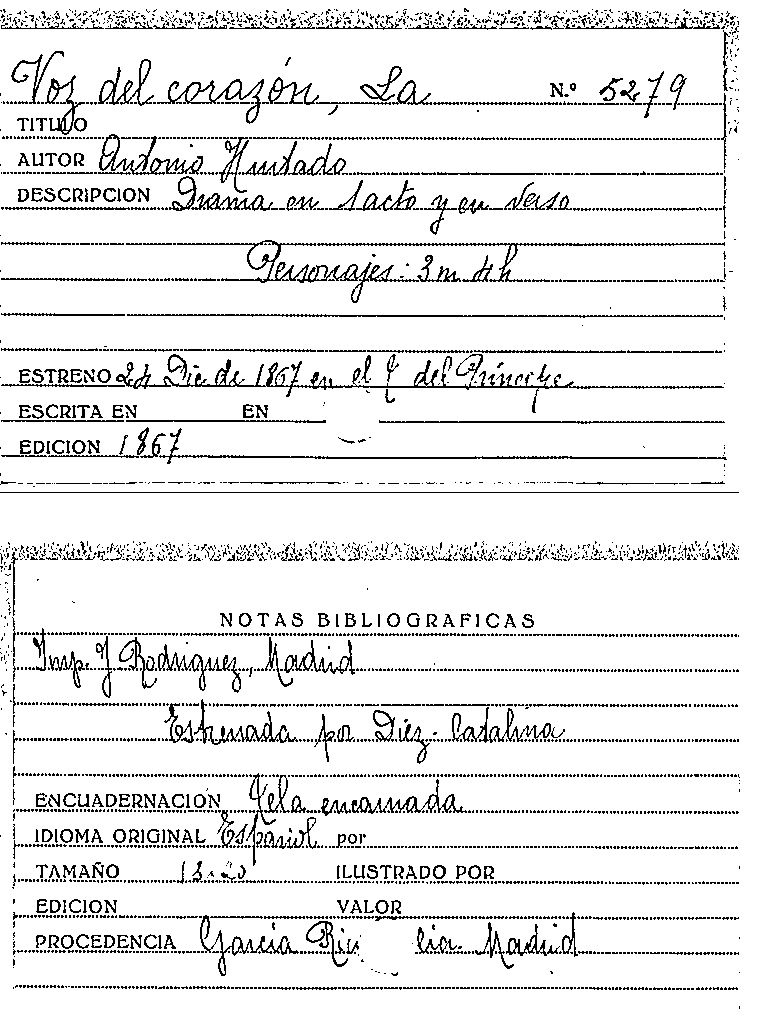 Voz del corazón, La N.º 5279
TITULO
AUTOR Antonio Hurtado
DESCRIPCION Drama en 1 acto y en verso
Personajes: 3 m 4 h
ESTRENO 24 Dic de 1867 en el T del Príncipe
ESCRITA EN EN
EDICION 1867
NOTAS BIBLIOGRAFICAS
Imp. J Rodriguez, Madrid
Estrenada por Diez. Catalina
ENCUADERNACION Tela encarnada
IDIOMA ORIGINAL Español por
TAMAÑO ILUSTRADO POR
EDICION VALOR
PROCEDENCIA Garcia Rico Madrid